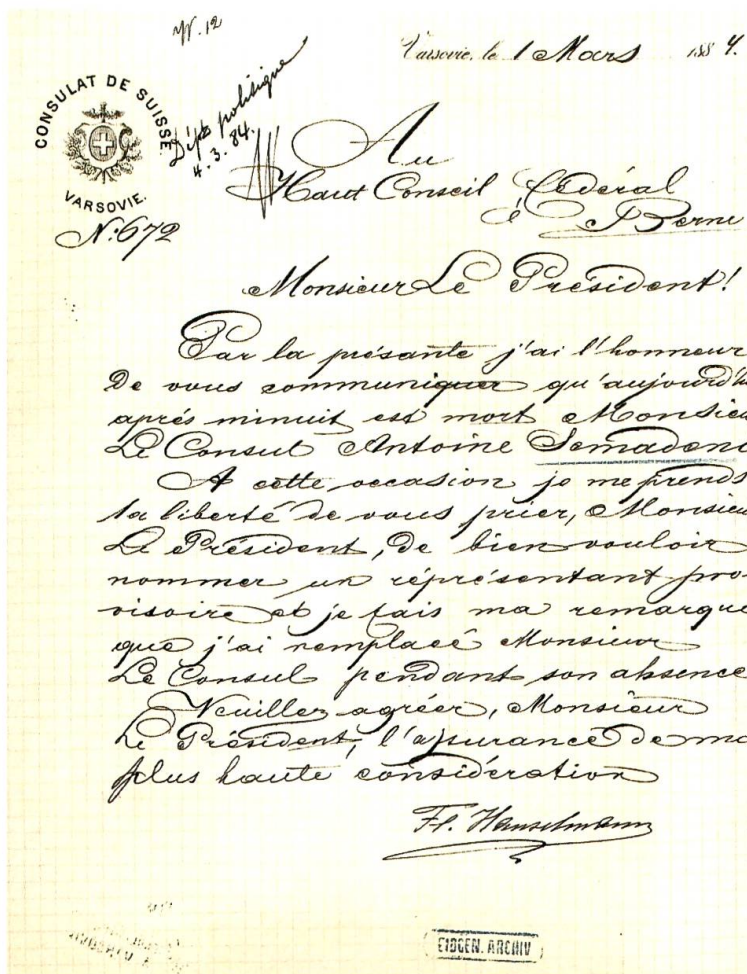 Nr. 12
Varsovie, le 1 Mars 1884.
CONSULAT DE SUISSE.
VARSOVIE.
Dépt politique
4. 3. 84.
Au
Haut Conseil fédéral
à Berne
No: 672
Monsieur Le Président!
Par la présante j'ai l'honneur
De vous communiquer qu'aujourd'h
aprés minuit est mort Monsieu
Le Consul Antoine Semadeni
A cette occasion je me prends
la liberté de vous prier, Monsieu
Le Président, De bien vouloir
nommer un réprésentant pro-
visoire et je fais ma remarque
que j'ai remplacé Monsieur
Le Consul pendant son absence
Veuillez agréer, Monsieur
Le Président, l'assurance de ma
plus haute considération
Fl. Hanselmann
EIDGEN. ARCHIV